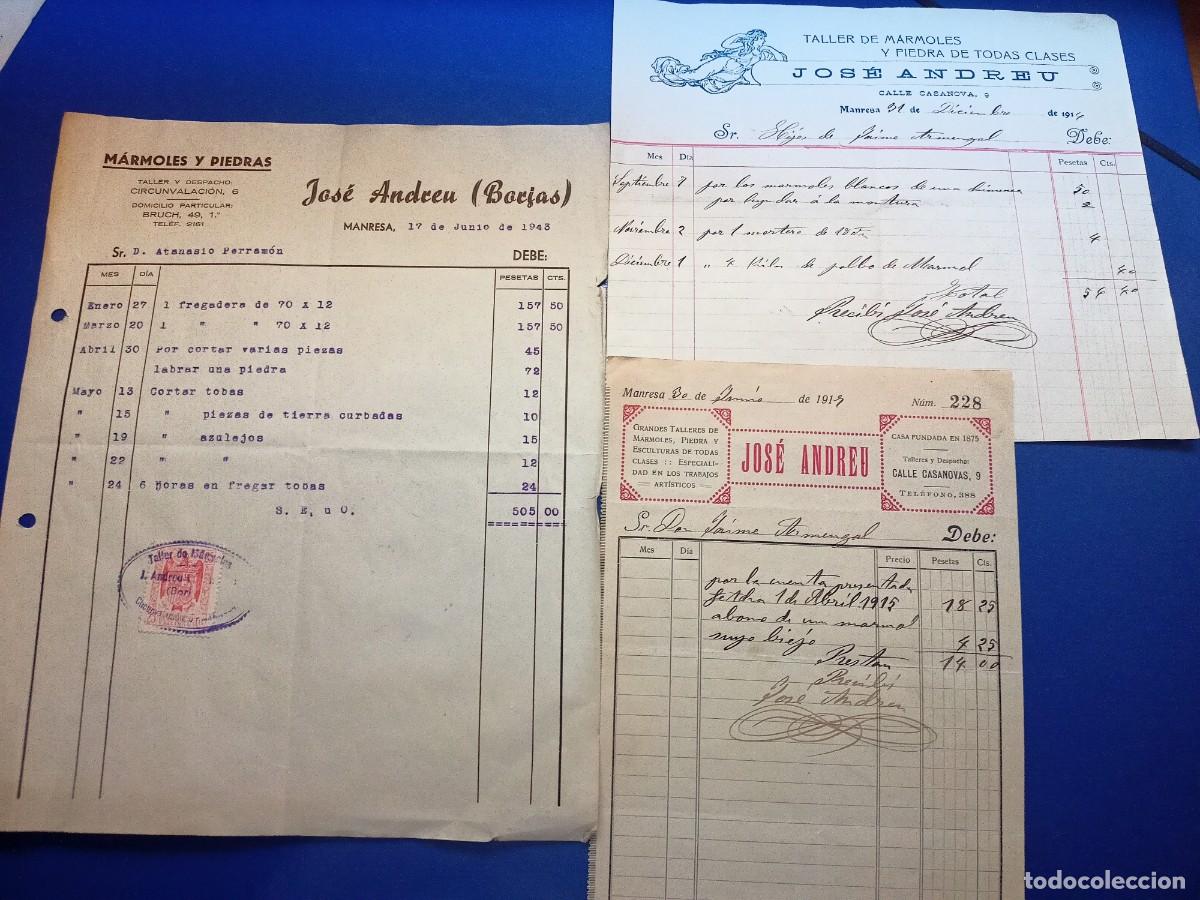 MÁRMOLES Y PIEDRAS
TALLER Y DESPACHO:
CIRCUNVALACIÓN, 6
DOMICILIO PARTICULAR:
BRUCH, 49, 1.º
TELÉF. 2161
José Andreu (Borjas)
MANRESA, 17 de Junio de 1943
Sr. D. Atanasio Perramón DEBE:
MES DÍA PESETAS CTS.
Enero 27 1 fregadera de 70 X 12 157 50
Marzo 20 1 " " 70 X 12 157 50
Abril 30 Por cortar varias piezas 45
labrar una piedra 72
Mayo 13 Cortar tobas 12
" 15 " piezas de tierra curbadas 10
" 19 " azulejos 15
" 22 " " 12
" 24 6 horas en fregar tobas 24
S. E, u O. 505 00
Taller de Mármoles
J. Andreu
(Bor
TALLER DE MÁRMOLES
Y PIEDRA DE TODAS CLASES
JOSÉ ANDREU
CALLE CASANOVA, 9
Manresa 31 de Diciembre de 1914
Sr. Hijos de Jaime Armengal Debe:
Mes Día Pesetas Cts.
Septiembre 7 por los marmoles blancos de una chimenea 50
por ayudar á la montura 2
Noviembre 2 por 1 mortero de 18 4
Diciembre 1 " 4 Kilos de polbo de Marmol 40
Total 54 40
Recibi José Andreu
Manresa 30 de Junio de 191 Núm. 228
GRANDES TALLERES DE
MÁRMOLES, PIEDRA Y
ESCULTURAS DE TODAS
CLASES :: ESPECIALI-
DAD EN LOS TRABAJOS
ARTÍSTICOS
JOSÉ ANDREU
CASA FUNDADA EN 1875
Talleres y Despacho:
CALLE CASANOVAS, 9
TELÉFONO, 388
Sr. Don Jaime Armengal Debe:
Mes Día Precio Pesetas Cts.
por la cuenta presentada
fetcha 1 de Abril 1915 18 25
abono de un marmol
suyo biejo 4 25
Prestan 14 00
Recibí
José Andreu
todocoleccion